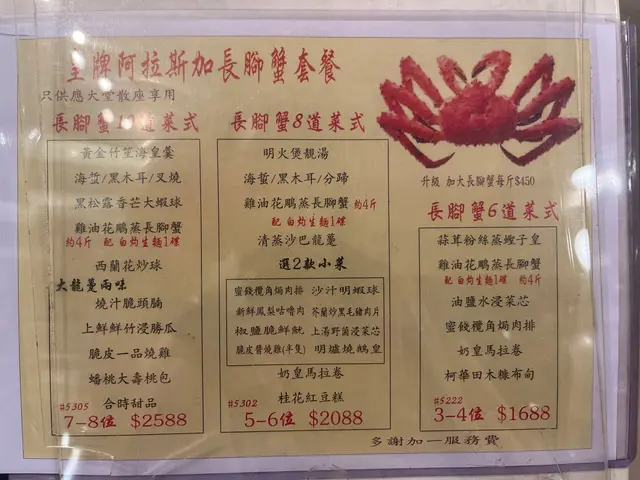 皇牌阿拉斯加長腳蟹套餐
只供應大堂散座享用
長腳蟹10道菜式
黃金竹笙海皇羹
海蜇/黑木耳/叉燒
黑松露香芒大蝦球
雞油花鵰蒸長腳蟹
約4斤 配白灼生麵1碟
西蘭花炒球
大龍躉兩味
燒汁脆頭腩
上鮮鮮竹浸勝瓜
脆皮一品燒雞
蟠桃大壽桃包
合時甜品
#5305
7-8位 $2588
長腳蟹8道菜式
明火煲靚湯
海蜇/黑木耳/分蹄
雞油花鵰蒸長腳蟹 約4斤
配白灼生麵1碟
清蒸沙巴龍躉
選2款小菜
蜜餞欖角焗肉排 沙汁明蝦球
新鮮鳳梨咕嚕肉 芥蘭炒黑毛豬肉片
椒鹽脆鮮魷 上湯野菌浸菜芯
脆皮醬燒雞(半隻) 明爐燒鵝皇
奶皇馬拉卷
桂花紅豆糕
#5302
5-6位 $2088
升級 加大長腳蟹每斤$450
長腳蟹6道菜式
蒜茸粉絲蒸蟶子皇
雞油花鵰蒸長腳蟹
配白灼生麵1碟 約4斤
油鹽水浸菜芯
蜜餞欖角焗肉排
奶皇馬拉卷
柯華田木糠布甸
#5222
3-4位 $1688
多謝加一服務費